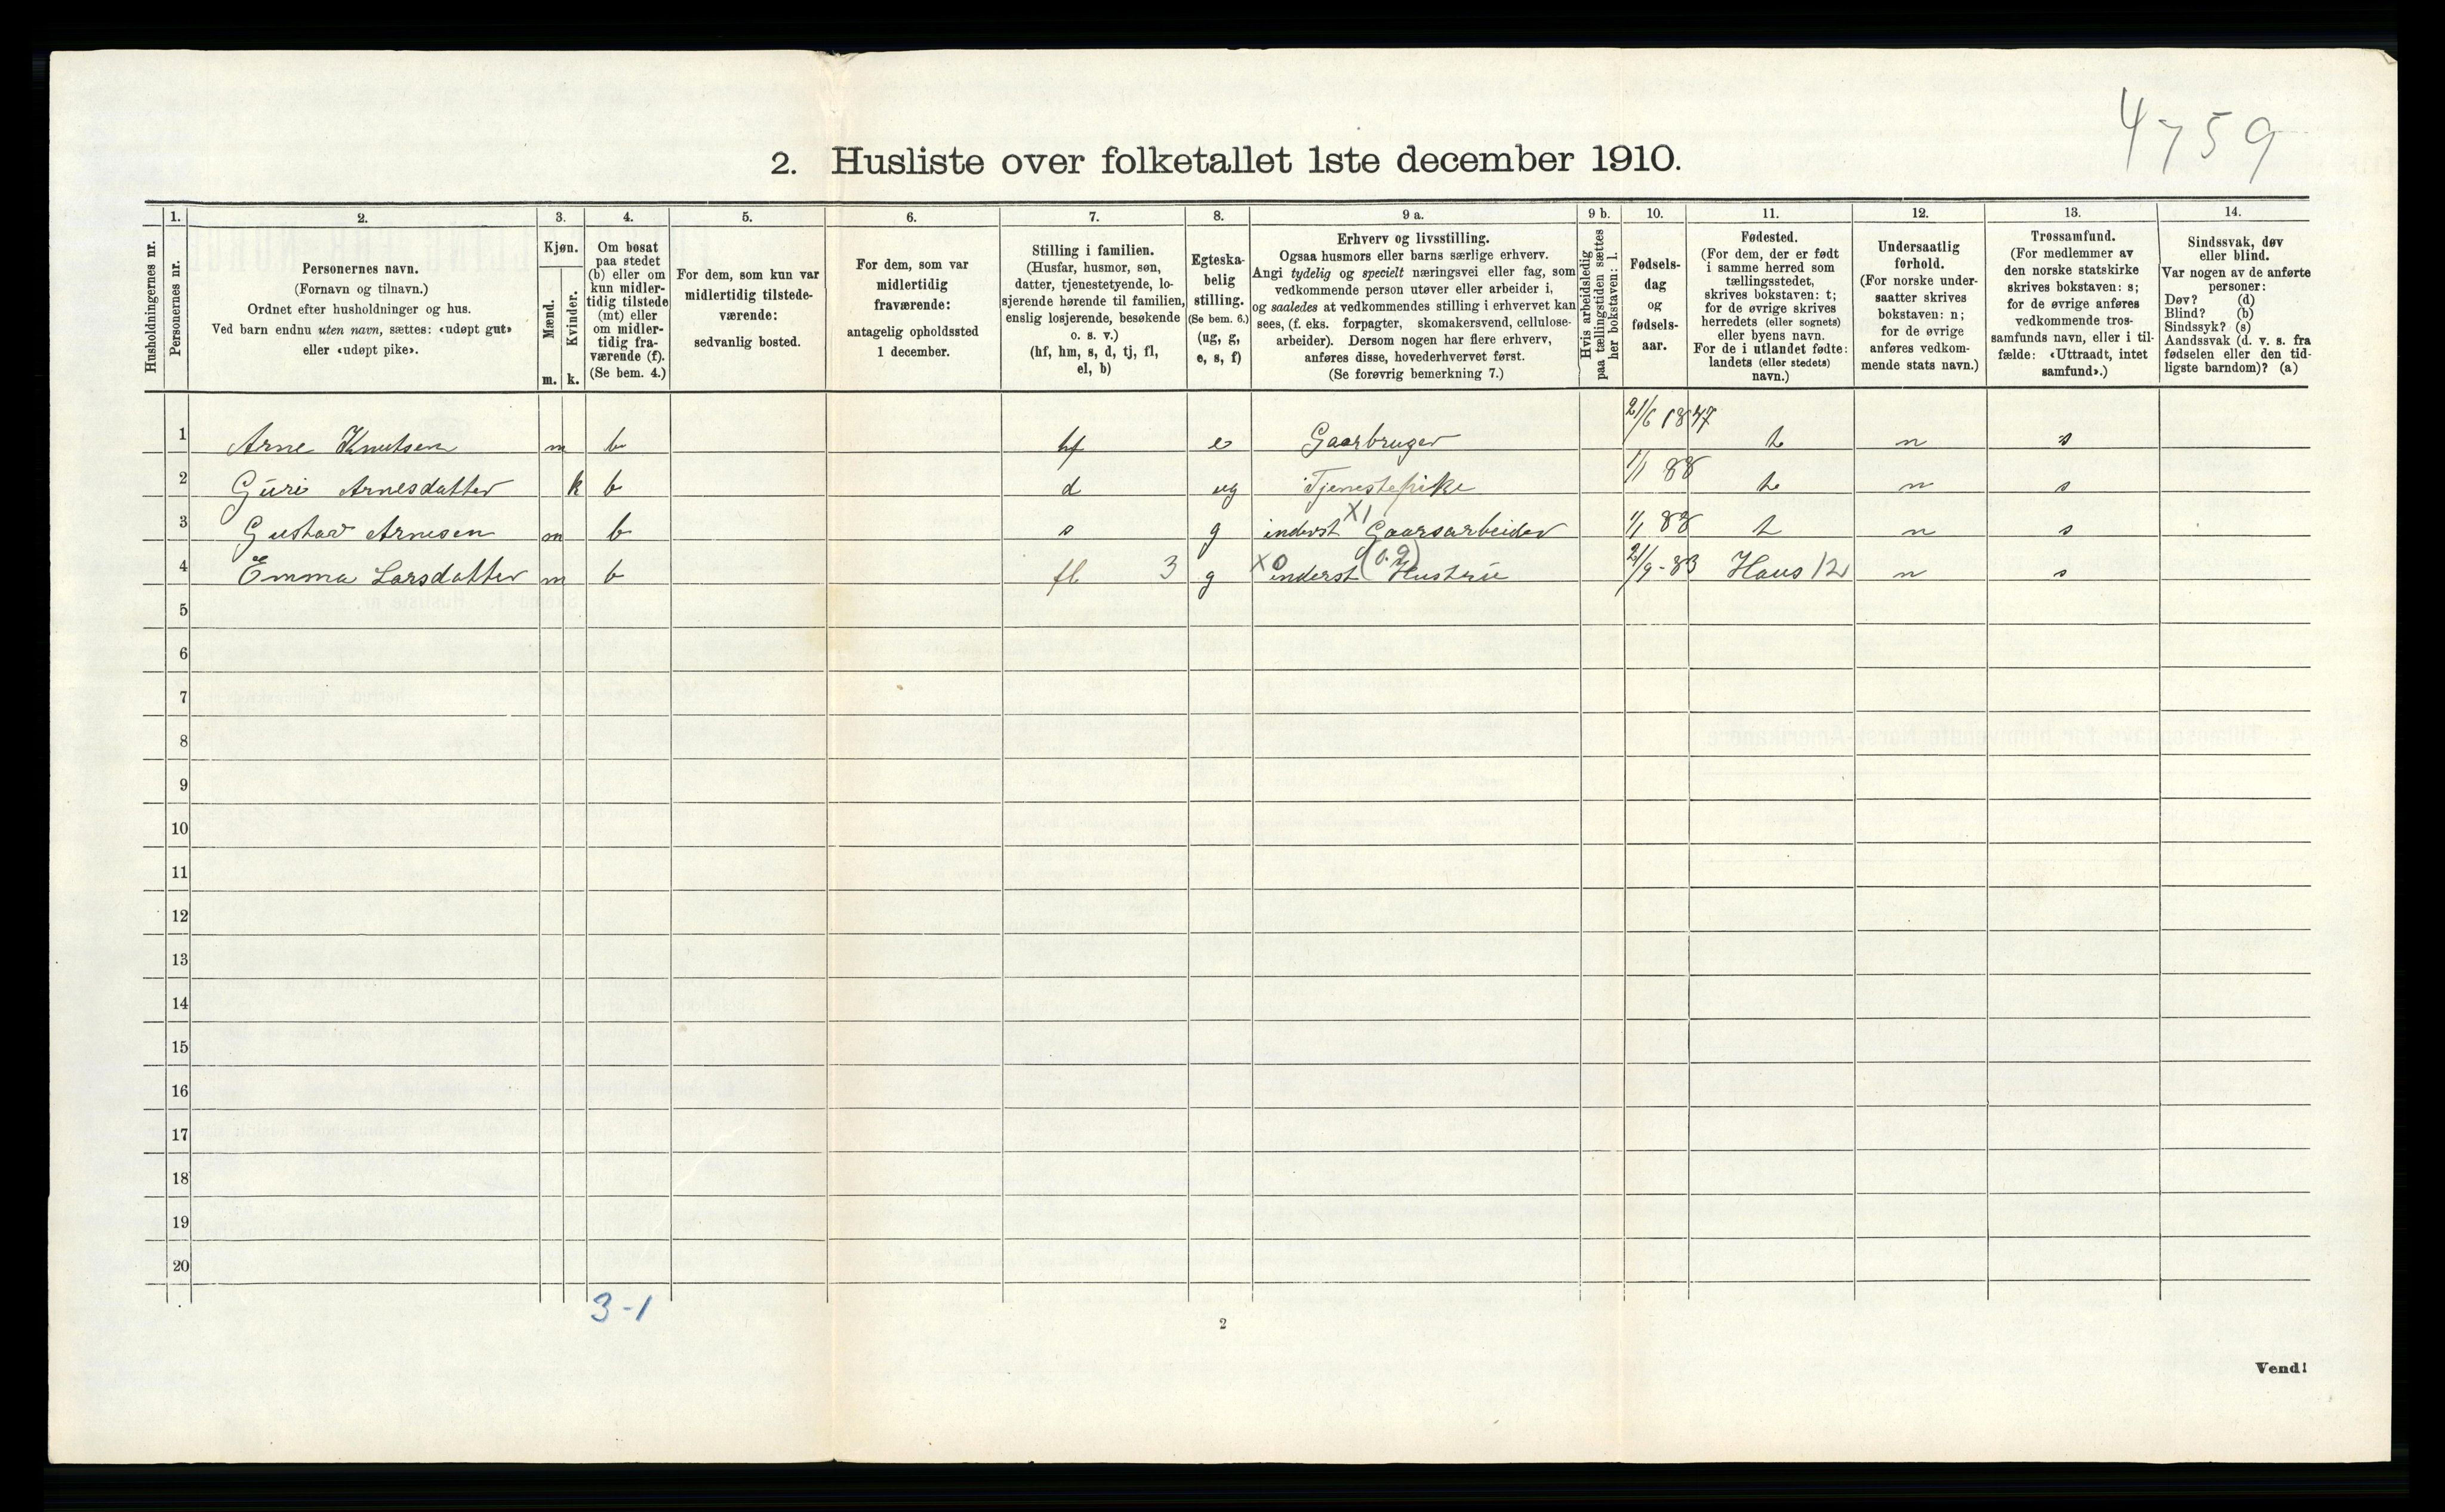 4759
2. Husliste over folketallet 1ste december 1910.
Husholdningernes nr.
1.
Personernes nr.
2.
Personernes navn.
(Fornavn og tilnavn.)
Ordnet efter husholdninger og hus.
Ved barn endnu uten navn, sættes: «udøpt gut»
eller «udøpt pike».
3.
Kjøn.
Mænd.
Kvinder.
m. k.
4.
Om bosat
paa stedet
(b) eller om
kun midler-
tidig tilstede
(mt) eller
om midler-
tidig fra-
værende (f).
(Se bem. 4.)
5.
For dem, som kun var
midlertidig tilstede-
værende:
sedvanlig bosted.
6.
For dem, som var
midlertidig
fraværende:
antagelig opholdssted
1 december.
7.
Stilling i familien.
(Husfar, husmor, søn,
datter, tjenestetyende, lo-
sjerende hørende til familien,
enslig losjerende, besøkende
o. s. v.)
(hf, hm, s, d, tj, fl,
el, b)
8.
Egteska-
belig
stilling.
(Se bem. 6.)
(ug, g,
e, s, f)
9 a.
Erhverv og livsstilling.
Ogsaa husmors eller barns særlige erhverv.
Angi tydelig og specielt næringsvei eller fag, som
vedkommende person utøver eller arbeider i,
og saaledes at vedkommendes stilling i erhvervet kan
sees, (f. eks. forpagter, skomakersvend, cellulose-
arbeider). Dersom nogen har flere erhverv,
anføres disse, hovederhvervet først.
(Se forøvrig bemerkning 7.)
9 b.
Hvis arbeidsledig
paa tællingstiden sættes
her bokstaven: l.
10.
Fødsels-
dag
og
fødsels-
aar.
11.
Fødested.
(For dem, der er født
i samme herred som
tællingsstedet,
skrives bokstaven: t;
for de øvrige skrives
herredets (eller sognets)
eller byens navn.
For de i utlandet fødte:
landets (eller stedets)
navn.)
12.
Undersaatlig
forhold.
(For norske under-
saatter skrives
bokstaven: n;
for de øvrige
anføres vedkom-
mende stats navn.)
13.
Trossamfund.
(For medlemmer av
den norske statskirke
skrives bokstaven: s;
for de øvrige anføres
vedkommende tros-
samfunds navn, eller i til-
fælde: «Uttraadt, intet
samfund».)
14.
Sindssvak, døv
eller blind.
Var nogen av de anførte
personer:
Døv? (d)
Blind? (b)
Sindssyk? (s)
Aandssvak (d. v. s. fra
fødselen eller den tid-
ligste barndom)? (a)
1 Arne Knutsen m b hf e Gaarbruger 21/6 1847 t n s
2 Guri Arnesdatter k b d ug Tjenestepike 1/1 88 t n s
3 Gustav Arnesen m b s g inderst X1 Gaarsarbeider 1/1 88 t n s
4 Emma Larsdatter m b fl 3 g X0 inderst (0.2) Hustru 21/9-83 Haus 12 n s
5
6
7
8
9
10
11
12
13
14
15
16
17
18
19
20
3-1
2
Vend!